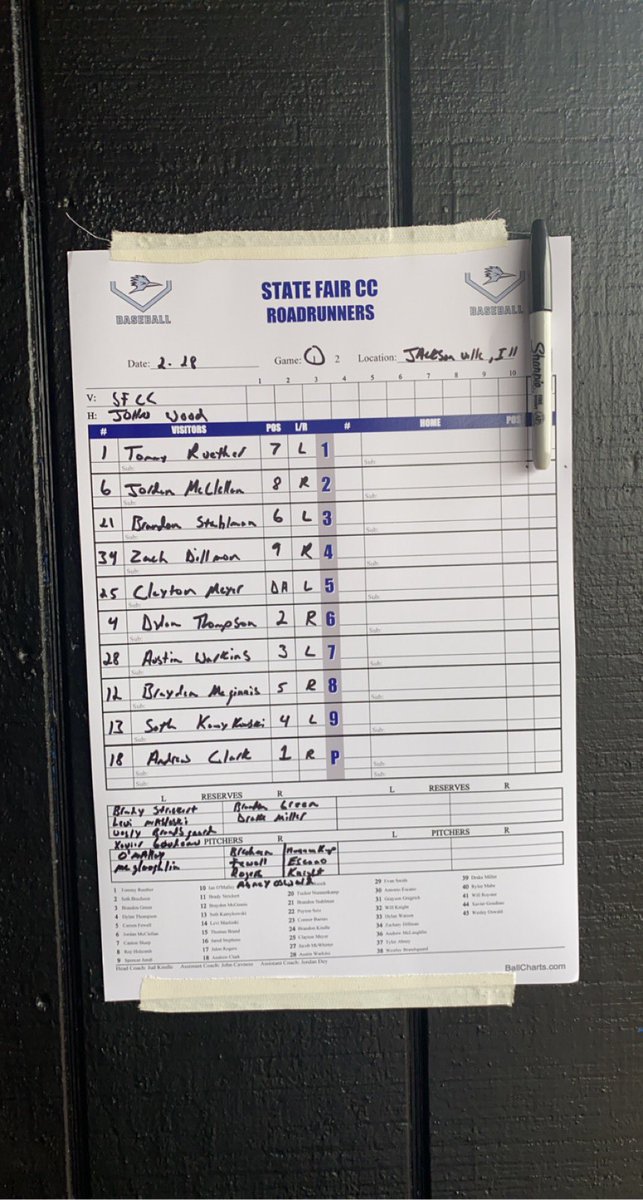 STATE FAIR CC
ROADRUNNERS
BASEBALL
BASEBALL
Date: 2-28 Game: 1 2 Location: Jacksonville, Ill
1 2 3 4 5 6 7 8 9 10
V: SFCC
H: John Wood
# VISITORS POS L/R # HOME POS
1 Tommy Ruether 7 L 1
Sub: Sub:
6 Jordan McClellan 8 R 2
Sub: Sub:
21 Brandon Stahlman 6 L 3
Sub: Sub:
34 Zach Dillmon 9 R 4
Sub: Sub:
25 Clayton Meyer DH L 5
Sub: Sub:
4 Dylan Thompson 2 R 6
Sub: Sub:
28 Austin Watkins 3 L 7
Sub: Sub:
12 Brayden Meginnis 5 R 8
Sub: Sub:
13 Seth Kamykowski 4 L 9
Sub: Sub:
18 Andrew Clark 1 R P
Sub: Sub:
L RESERVES R L RESERVES R
Brady Strickert Brandon Green
Levi Drake Miller
PITCHERS R L PITCHERS R
O'Malley
McGlaughlin Fewell
Rogers Knight
Abney Oswald
1 Tommy Ruether
3 Brandon Green
4 Dylan Thompson
5 Carson Fewell
6 Jordan McClellan
9 Spencer
10 Ian O'Malley
11 Brady Strickert
12 Brayden McGinnis
13 Seth Kamykowski
15 Thomas Brand
16 Jared Stephens
17 Jalen Rogers
18 Andrew Clark
22 Payton
23 Connor
24 Brandon Kindle
25 Clayton Meyer
27 Jacob McWhirter
28 Austin Watkins
29 Evan Smith
30 Antonio
31 Grayson
32 Will Knight
33 Dylan Watson
34 Zachary
36 Andrew McLaughlin
37 Tyler Abney
39 Drake Miller
40 Rylee
41 Will
44 Xavier
45 Wesley Oswald
Head Coach: Jud Kindle Assistant Coach: John Assistant Coach: Jordan Day
BallCharts.com
Sharpie